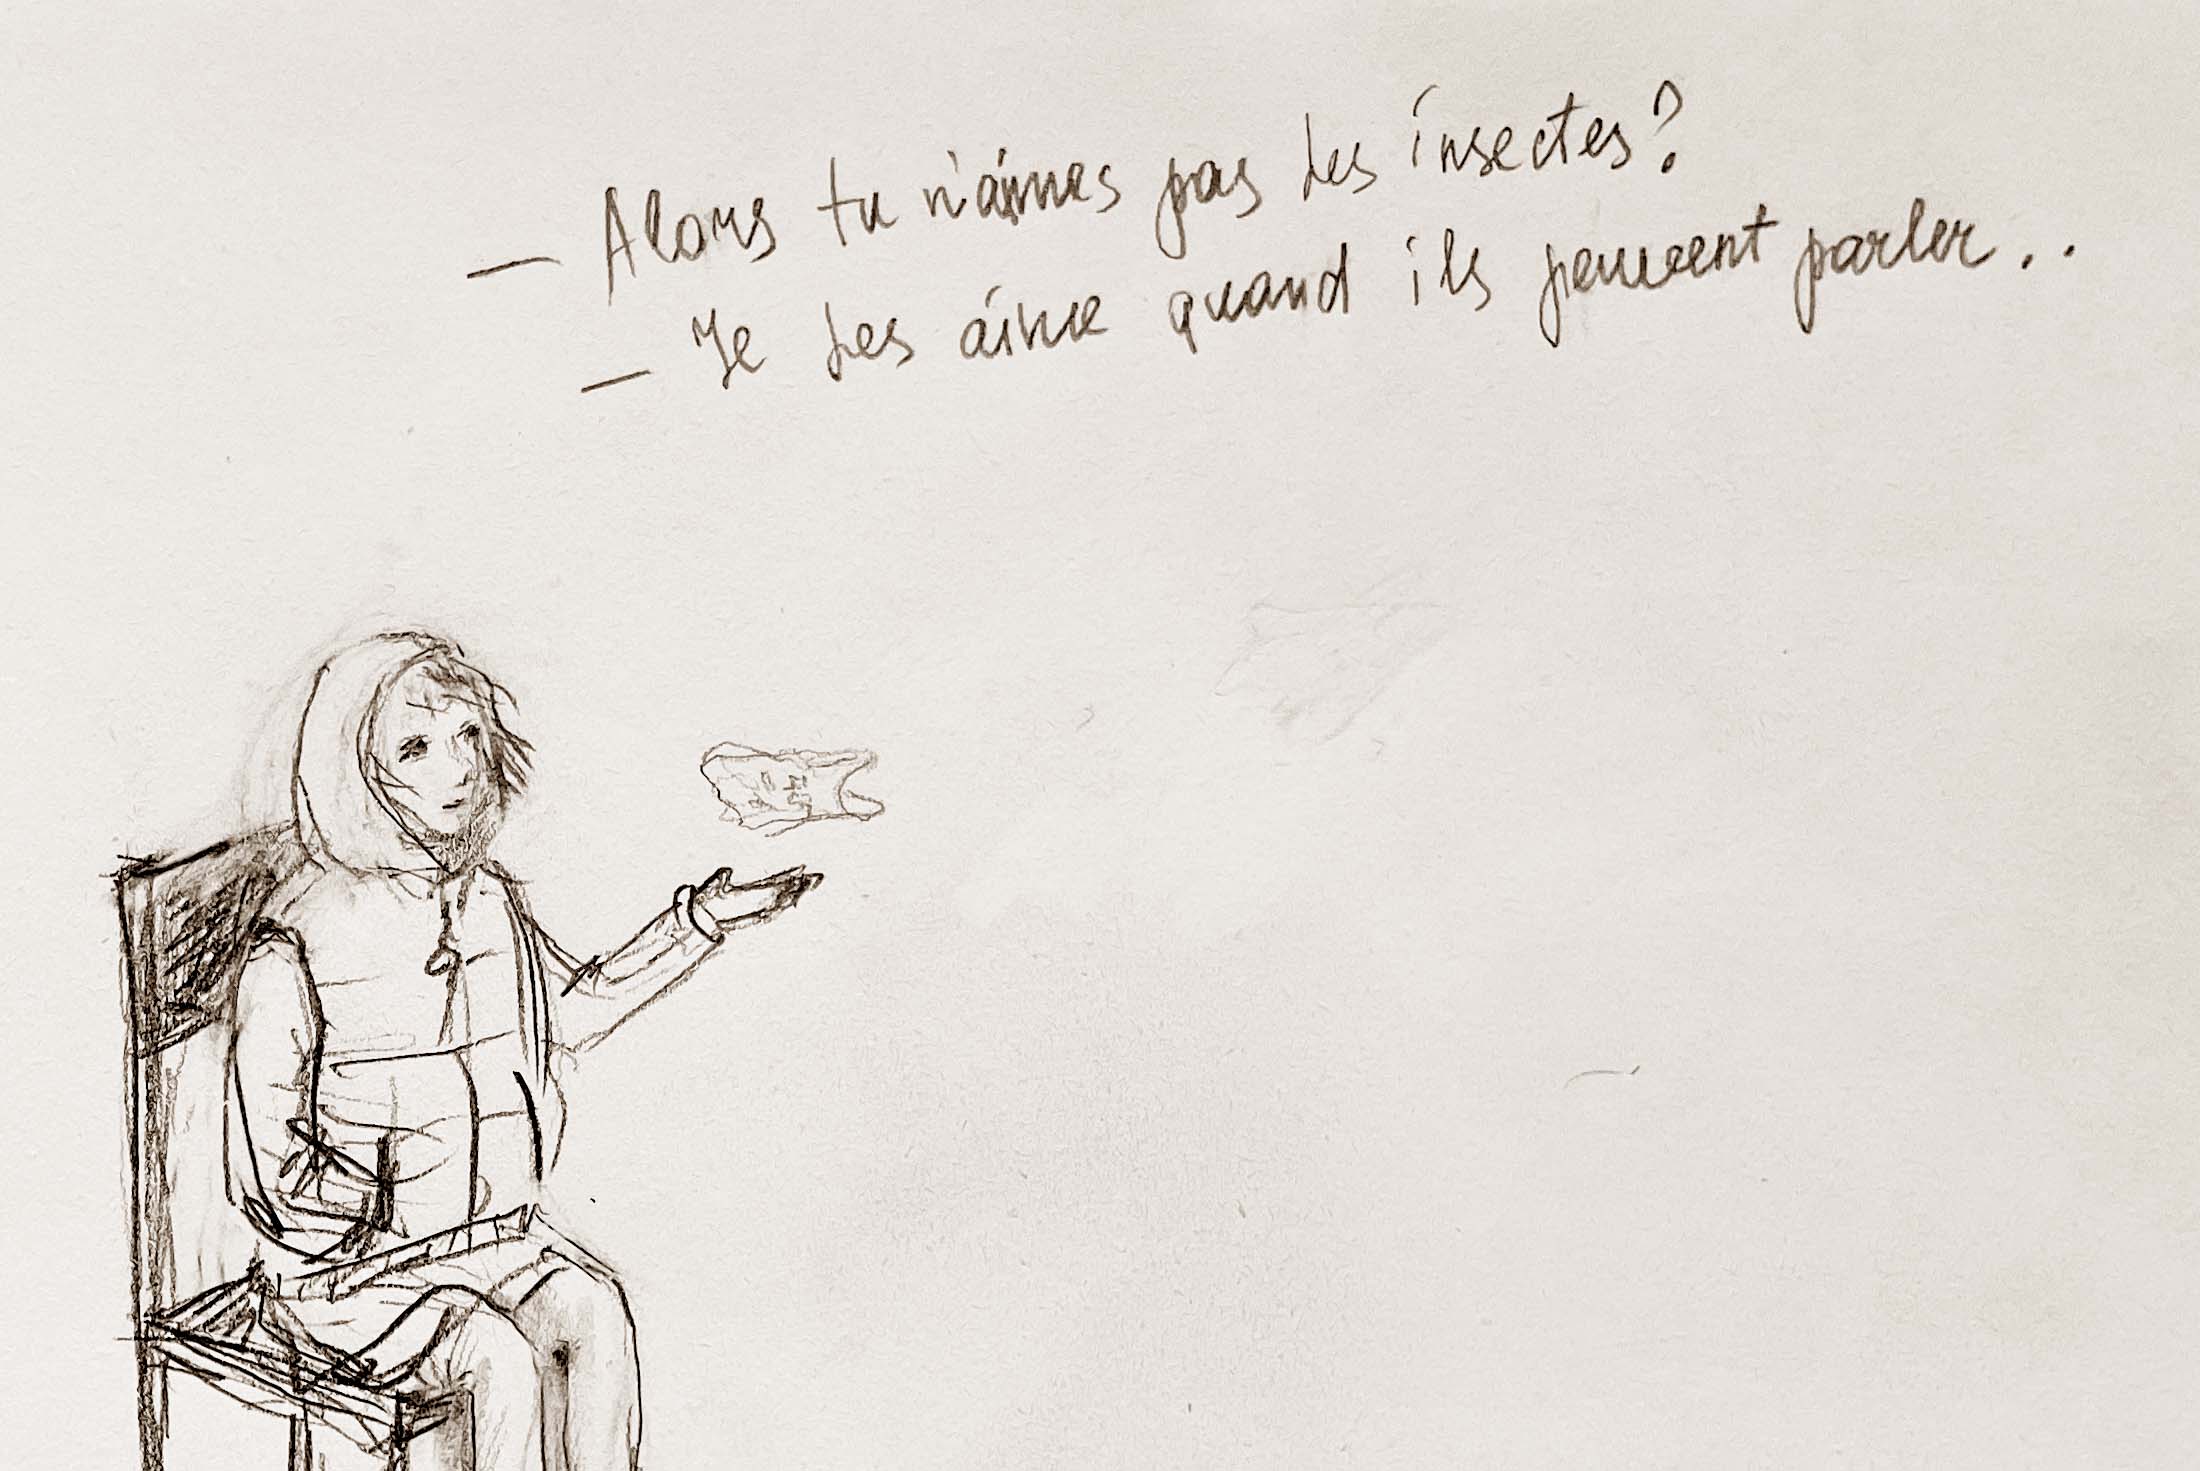 — Alors tu n'aimes pas les insectes?
— Je les aime quand ils peuvent parler..